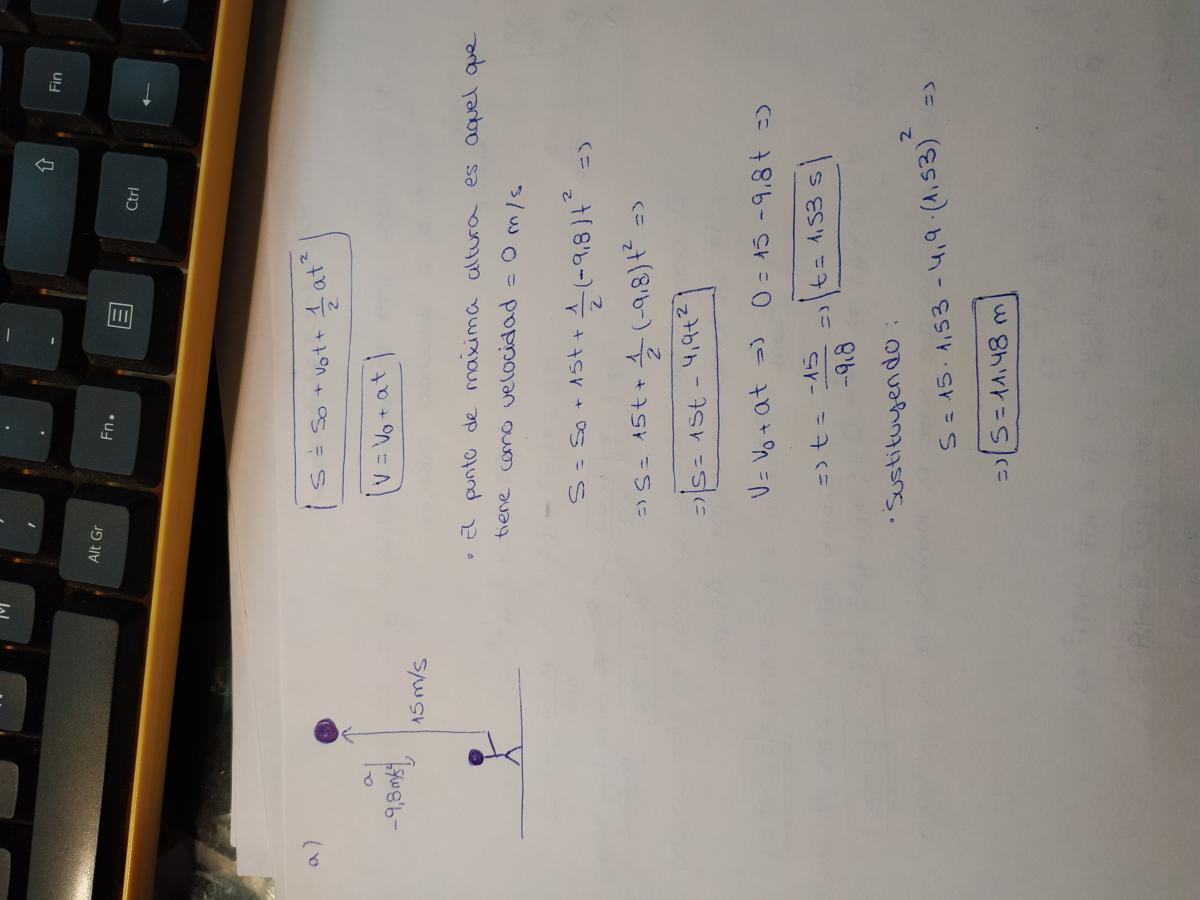 a)
a
-9,8 m/s²
15 m/s
S = S₀ + v₀t + 1/2 at²
V = V₀ + at
· El punto de máxima altura es aquel que
tiene como velocidad = 0 m/s
S = S₀ + 15t + 1/2 (-9,8)t² =>
=> S = 15t + 1/2 (-9,8)t² =>
=> S = 15t - 4,9t²
V = V₀ + at => 0 = 15 - 9,8t =>
=> t = -15/-9,8 => t = 1,53 s
· Sustituyendo:
S = 15 · 1,53 - 4,9 · (1,53)² =>
=> S = 11,48 m
Fin
←
⇧
Ctrl
-
_
.
:
Fn
,
;
Alt Gr
M